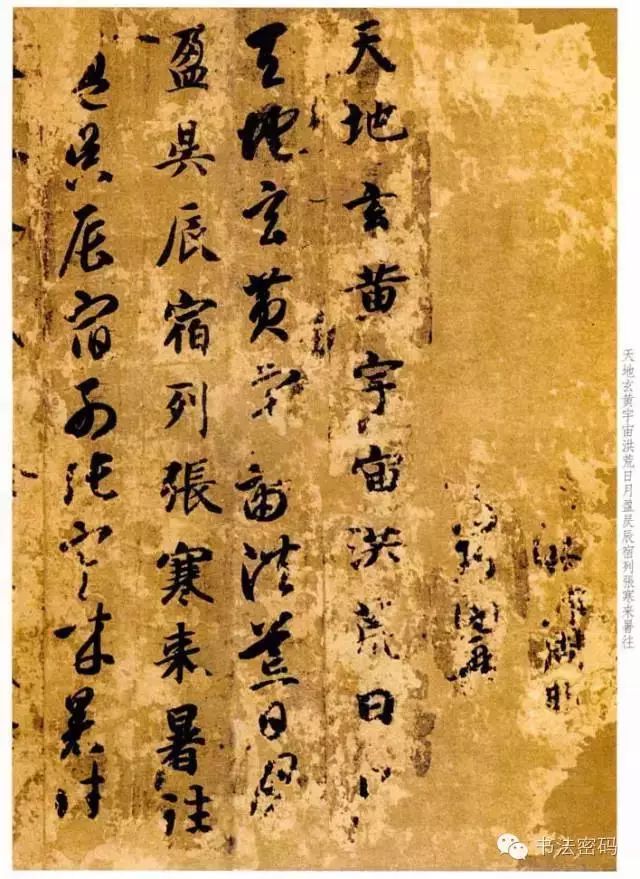 天地玄黄宇宙洪荒日月盈昃辰宿列張寒来暑往
天地玄黄宇宙洪荒日月
天地玄黄宇宙洪荒日月
盈昃辰宿列張寒来暑往
盈昃辰宿列張寒来暑往
书法密码